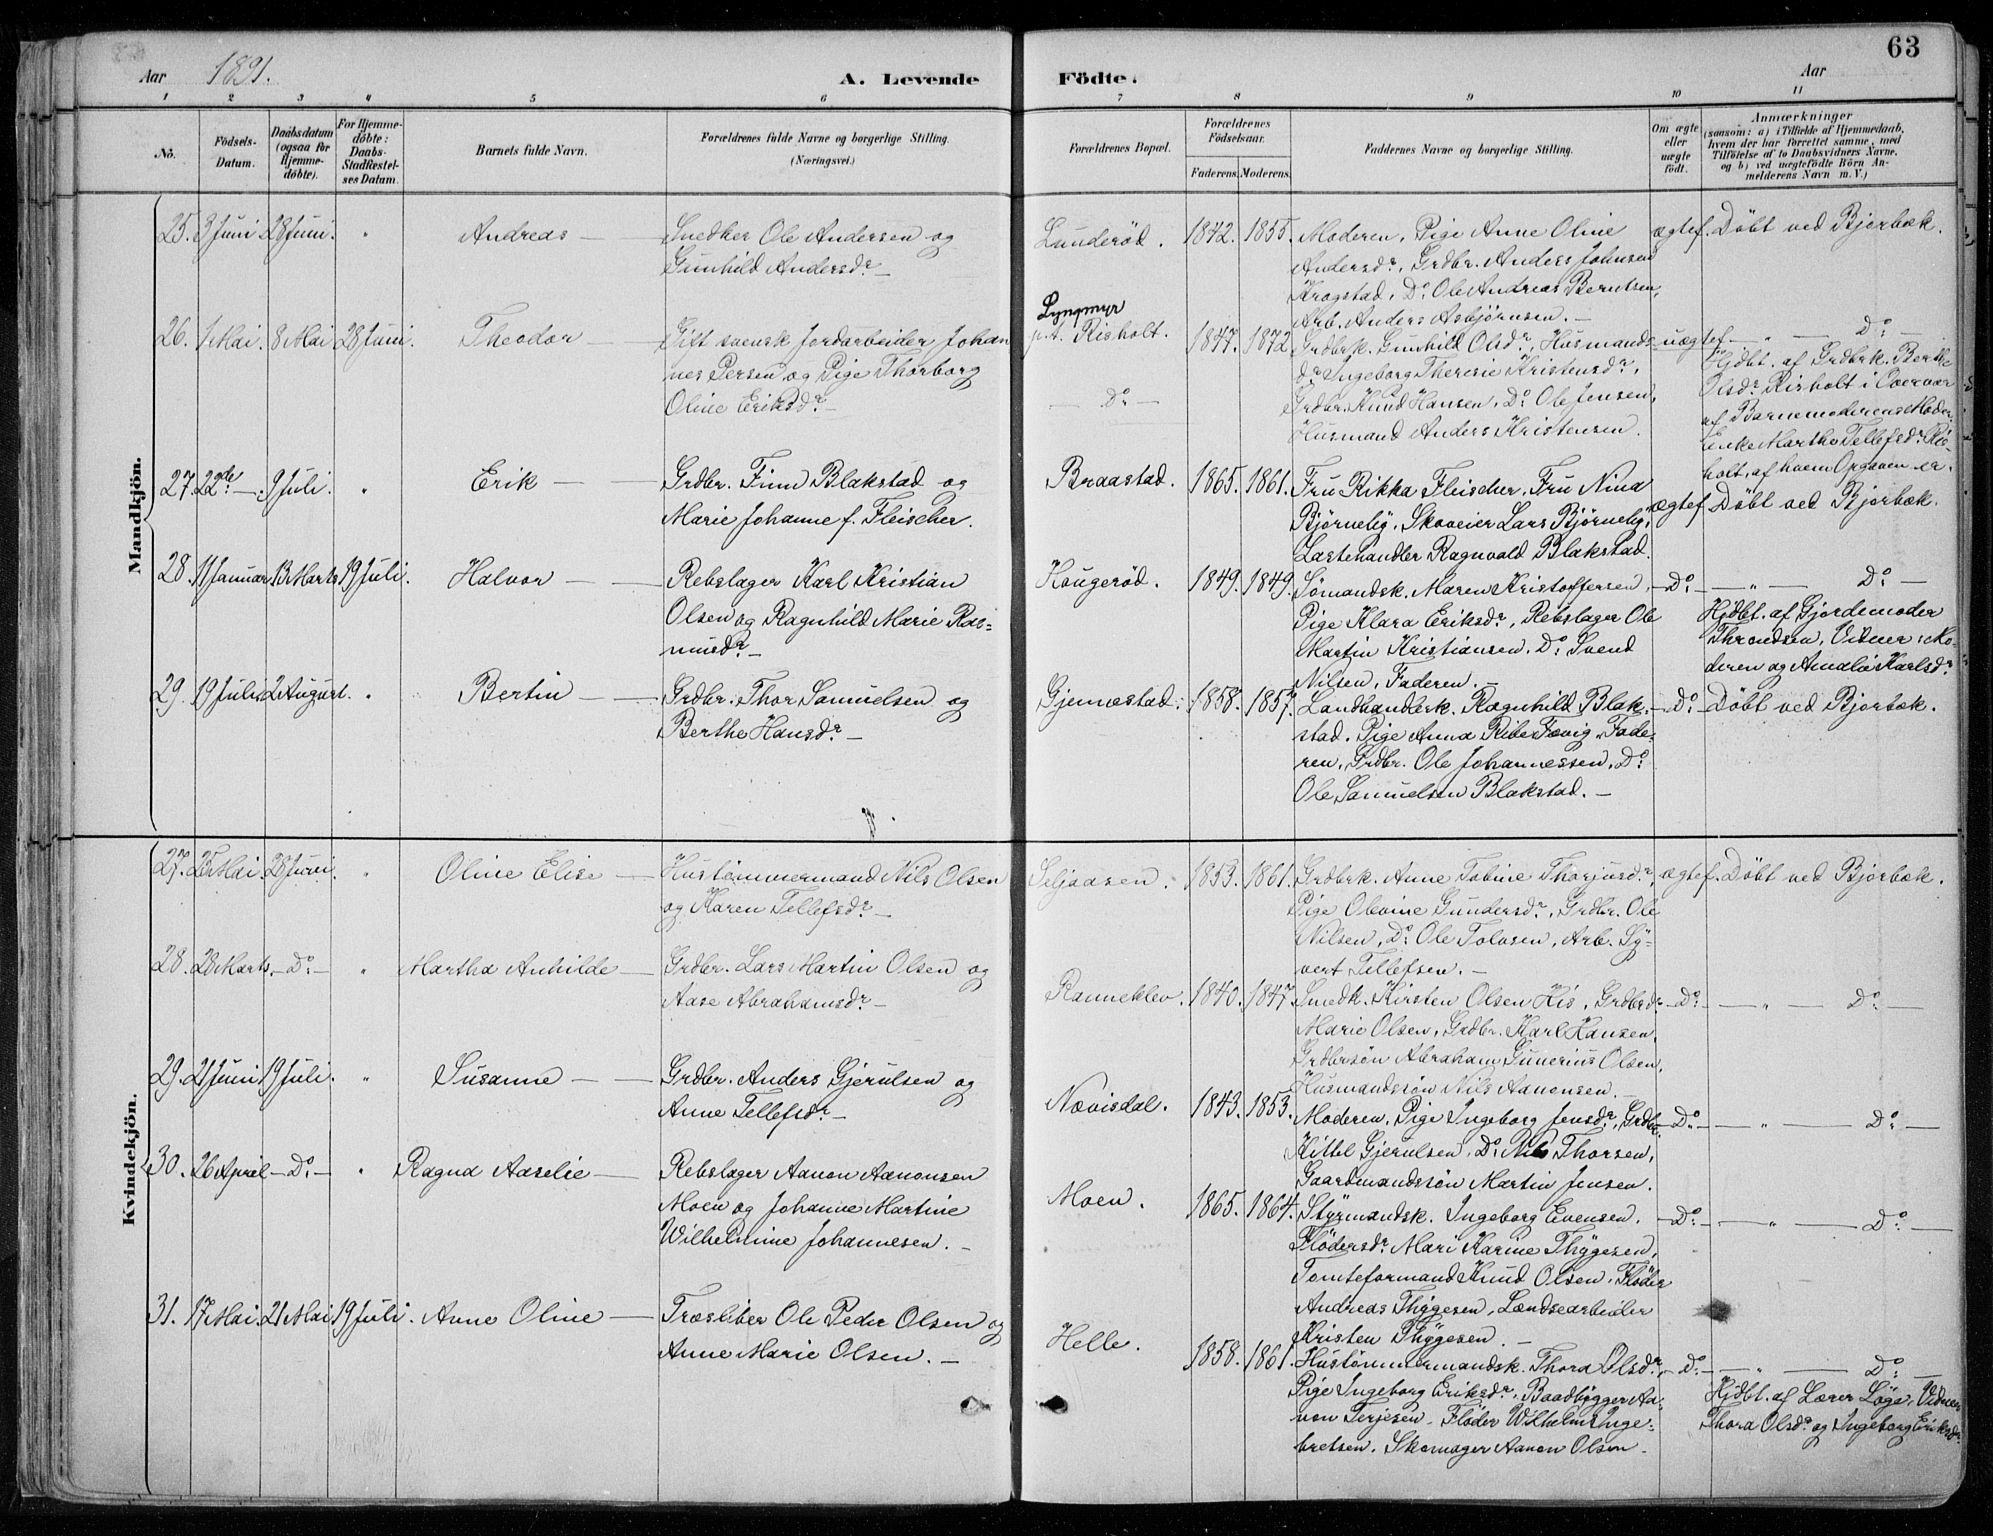 63
Aar 1891.
A. Levende Födte.
Aar
1 2 3 4 5 6 7 8 9 10 11
No.
Födsels-Datum.
Daabsdatum (ogsaa for Hjemme-döbte).
For Hjemme-döbte: Daabs-Stadfæstel-ses Datum.
Barnets fulde Navn.
Forældrenes fulde Navne og borgerlige Stilling. (Næringsvei.)
Forældrenes Bopæl.
Forældrenes Födselsaar.
Faderens. Moderens.
Faddernes Navne og borgerlige Stilling.
Om ægte eller uægte födt.
Anmærkninger
(saasom: a) i Tilfælde af Hjemmedaab,
hvem der har forrettet samme, med
Tilföielse af to Daabsvidners Navne,
og b) ved uægtefödte Börn An-
melderens Navn m. V.)
Mandkjön.
25. 3 Juni 28 Juni. " Andreas —
Snedker Ole Andersen og
Gunhild Andersdr. —
Lunderød. 1842. 1855.
Moderen, Pige Anne Oline
Andersdr., Grdbr. Anders Johnsen
Krogstad, Do. Ole Andreas Berntsen,
Arb. Anders Asbjörnsen. —
ægtef. Döbt ved Bjorbæk.
26. 1 Mai. 8 Mai 28 Juni. Theodor —
Gift svensk Jordarbeider Johan
nes Persen og Pige Thorborg
Oline Eriksdr. —
Lyngmyr
p.t. Risholt.
— Do. —
1847. 1872
Grdbrk. Gunhild Olsdr., Husmands-
dr. Ingeborg Theresie Kristensdr.,
Grdbr. Knud Hansen, Do. Ole Jensen,
Husmand Anders Kristensen.
uægtef. — " — Do. —
Hjdbt. af Grdbrk. Berthe
Olsdr. Risholt i Overvær
af Barnemoderens Moder
Enke Marthe Tellefsdr. Ris
holt, af hvem Opgaven er.
27. 22de — 9 Juli. " Erik —
Grdbr. Finn Blakstad og
Marie Johanne f. Fleischer.
Braastad. 1865. 1861.
Fru Rikka Fleischer, Fru Nina
Björneby, Skoveier Lars Björneby,
Lastehandler Ragnvald Blakstad.
ægtef. Döbt ved Bjorbæk.
28. 11 Januar 13 Marts 19 Juli. Halvor —
Rebslager Karl Kristian
Olsen og Ragnhild Marie Ras-
musdr. —
Hougerød. 1849. 1849.
Sömandsk. Maren Kristoffersen,
Pige Klara Eriksdr., Rebslager Ole
Martin Kristiansen, Do. Svend
Nilsen, Faderen. —
— Do. — — " — Do. —
Hjdbt. af Gjordemoder
Throndsen, Vidner: Mo-
deren og Amalie Karlsdr.
29. 19 Juli 2 August. " Bertin —
Grdbr. Thor Samuelsen og
Berthe Hansdr. —
Gjennestad. 1858. 1857.
Landhandlerk. Ragnhild Blak-
stad. Pige Anna Ribe Fævig, Fade-
ren, Grdbr. Ole Johannessen, Do.
Ole Samuelsen Blakstad. —
— Do. — Döbt ved Bjorbæk.
Kvindekjön.
27. 25 Mai. 28 Juni. " Oline Elise —
Hustömmermand Nils Olsen
og Karen Tellefsdr. —
Seljaasen. 1853. 1861.
Grdbrk. Anne Tobine Thorjusdr.,
Pige Olevine Gundersdr., Grdbr. Ole
Nilsen, Do. Ole Tolvsen, Arb. Sy-
vert Tellefsen. —
ægtef. Döbt ved Bjorbæk.
28. 28 Marts. — Do. — " Martha Anhilde —
Grdbr. Lars Martin Olsen og
Aase Abrahamsdr. —
Ranneklev. 1840. 1847.
Smedk. Kirsten Olsen His, Grdbrdr.
Marie Olsen, Grdbr. Karl Hansen,
Grdbrsön Abraham Gunerius Olsen,
Husmandssön Nils Aanonsen. —
— Do. — — " — Do. —
29. 21 Juni 19 Juli. " Susanne —
Grdbr. Anders Gjerulsen og
Anne Tellefsdr. —
Nævisdal. 1843. 1853.
Moderen, Pige Ingeborg Jensdr., Grdbr.
Kittel Gjerulsen, Do. Nils Thorsen,
Gaardmandssön Martin Jensen.
— Do. — — " — Do. —
30. 26 April — Do. — " Ragna Aaselie —
Rebslager Aanon Aanonsen
Moen og Johanne Martine
Wilhelmine Johannesen. —
Moen. 1865. 1864.
Styrmandsk. Ingeborg Evensen,
Flödersdr. Mari Karine Thygesen,
Tomteformand Knud Olsen, Flöder
Andreas Thygesen, Lændsearbeider
Kristen Thygesen. —
— Do. — — " — Do. —
31. 17 Mai. 21 Mai 19 Juli. Anne Oline —
Træsliber Ole Peder Olsen og
Anne Marie Olsen. —
Helle. 1858. 1861.
Hustömmermandsk. Thora Olsdr.,
Pige Ingeborg Eriksdr., Baadbygger Aa-
non Terjesen, Flöder Wilhelm Inge-
bretsen, Skomager Aanon Olsen —
— Do. — — " — Do. —
Hjdbt. af Lærer Löge, Vidner
Thora Olsdr. og Ingeborg Eriksdr.